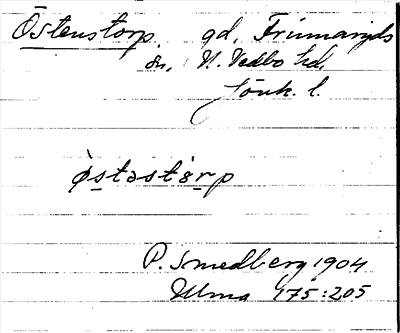 Östenstorp. gd, Frinnaryds
sn, N. Vedbo hd,
Jönk. l.
ø̀stəstɵrp
P. Smedberg 1904
Ulma 175:205